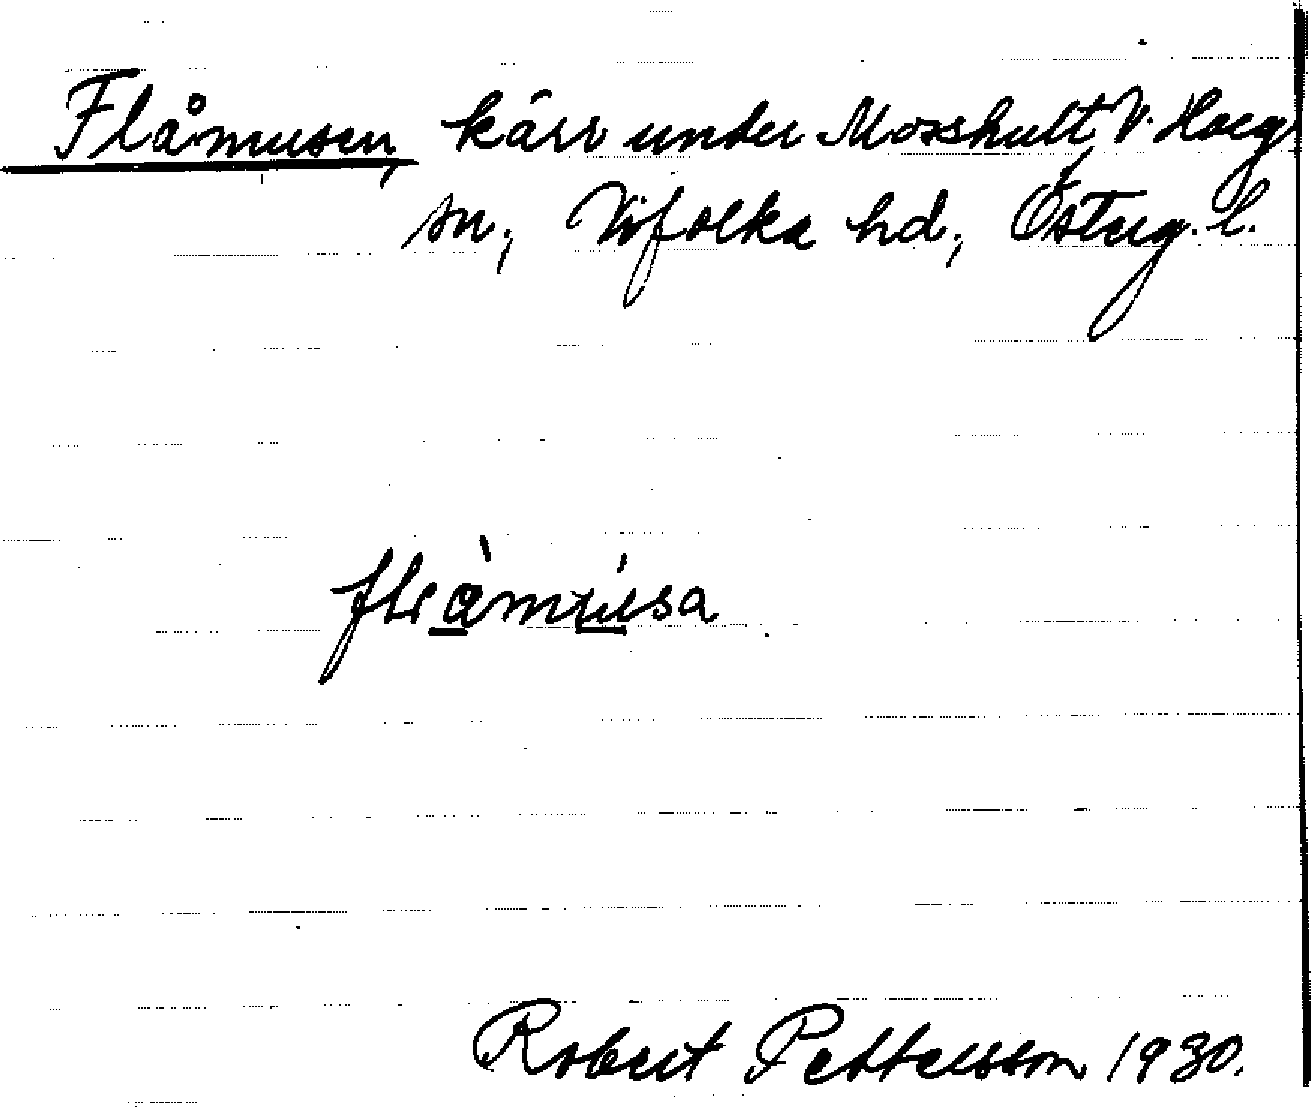 Flåmusen, kärr under Mosshult, V. Harg
sn, Vifolka hd, Östug. l.
flràmúsa
Robert Pettersson 1930.